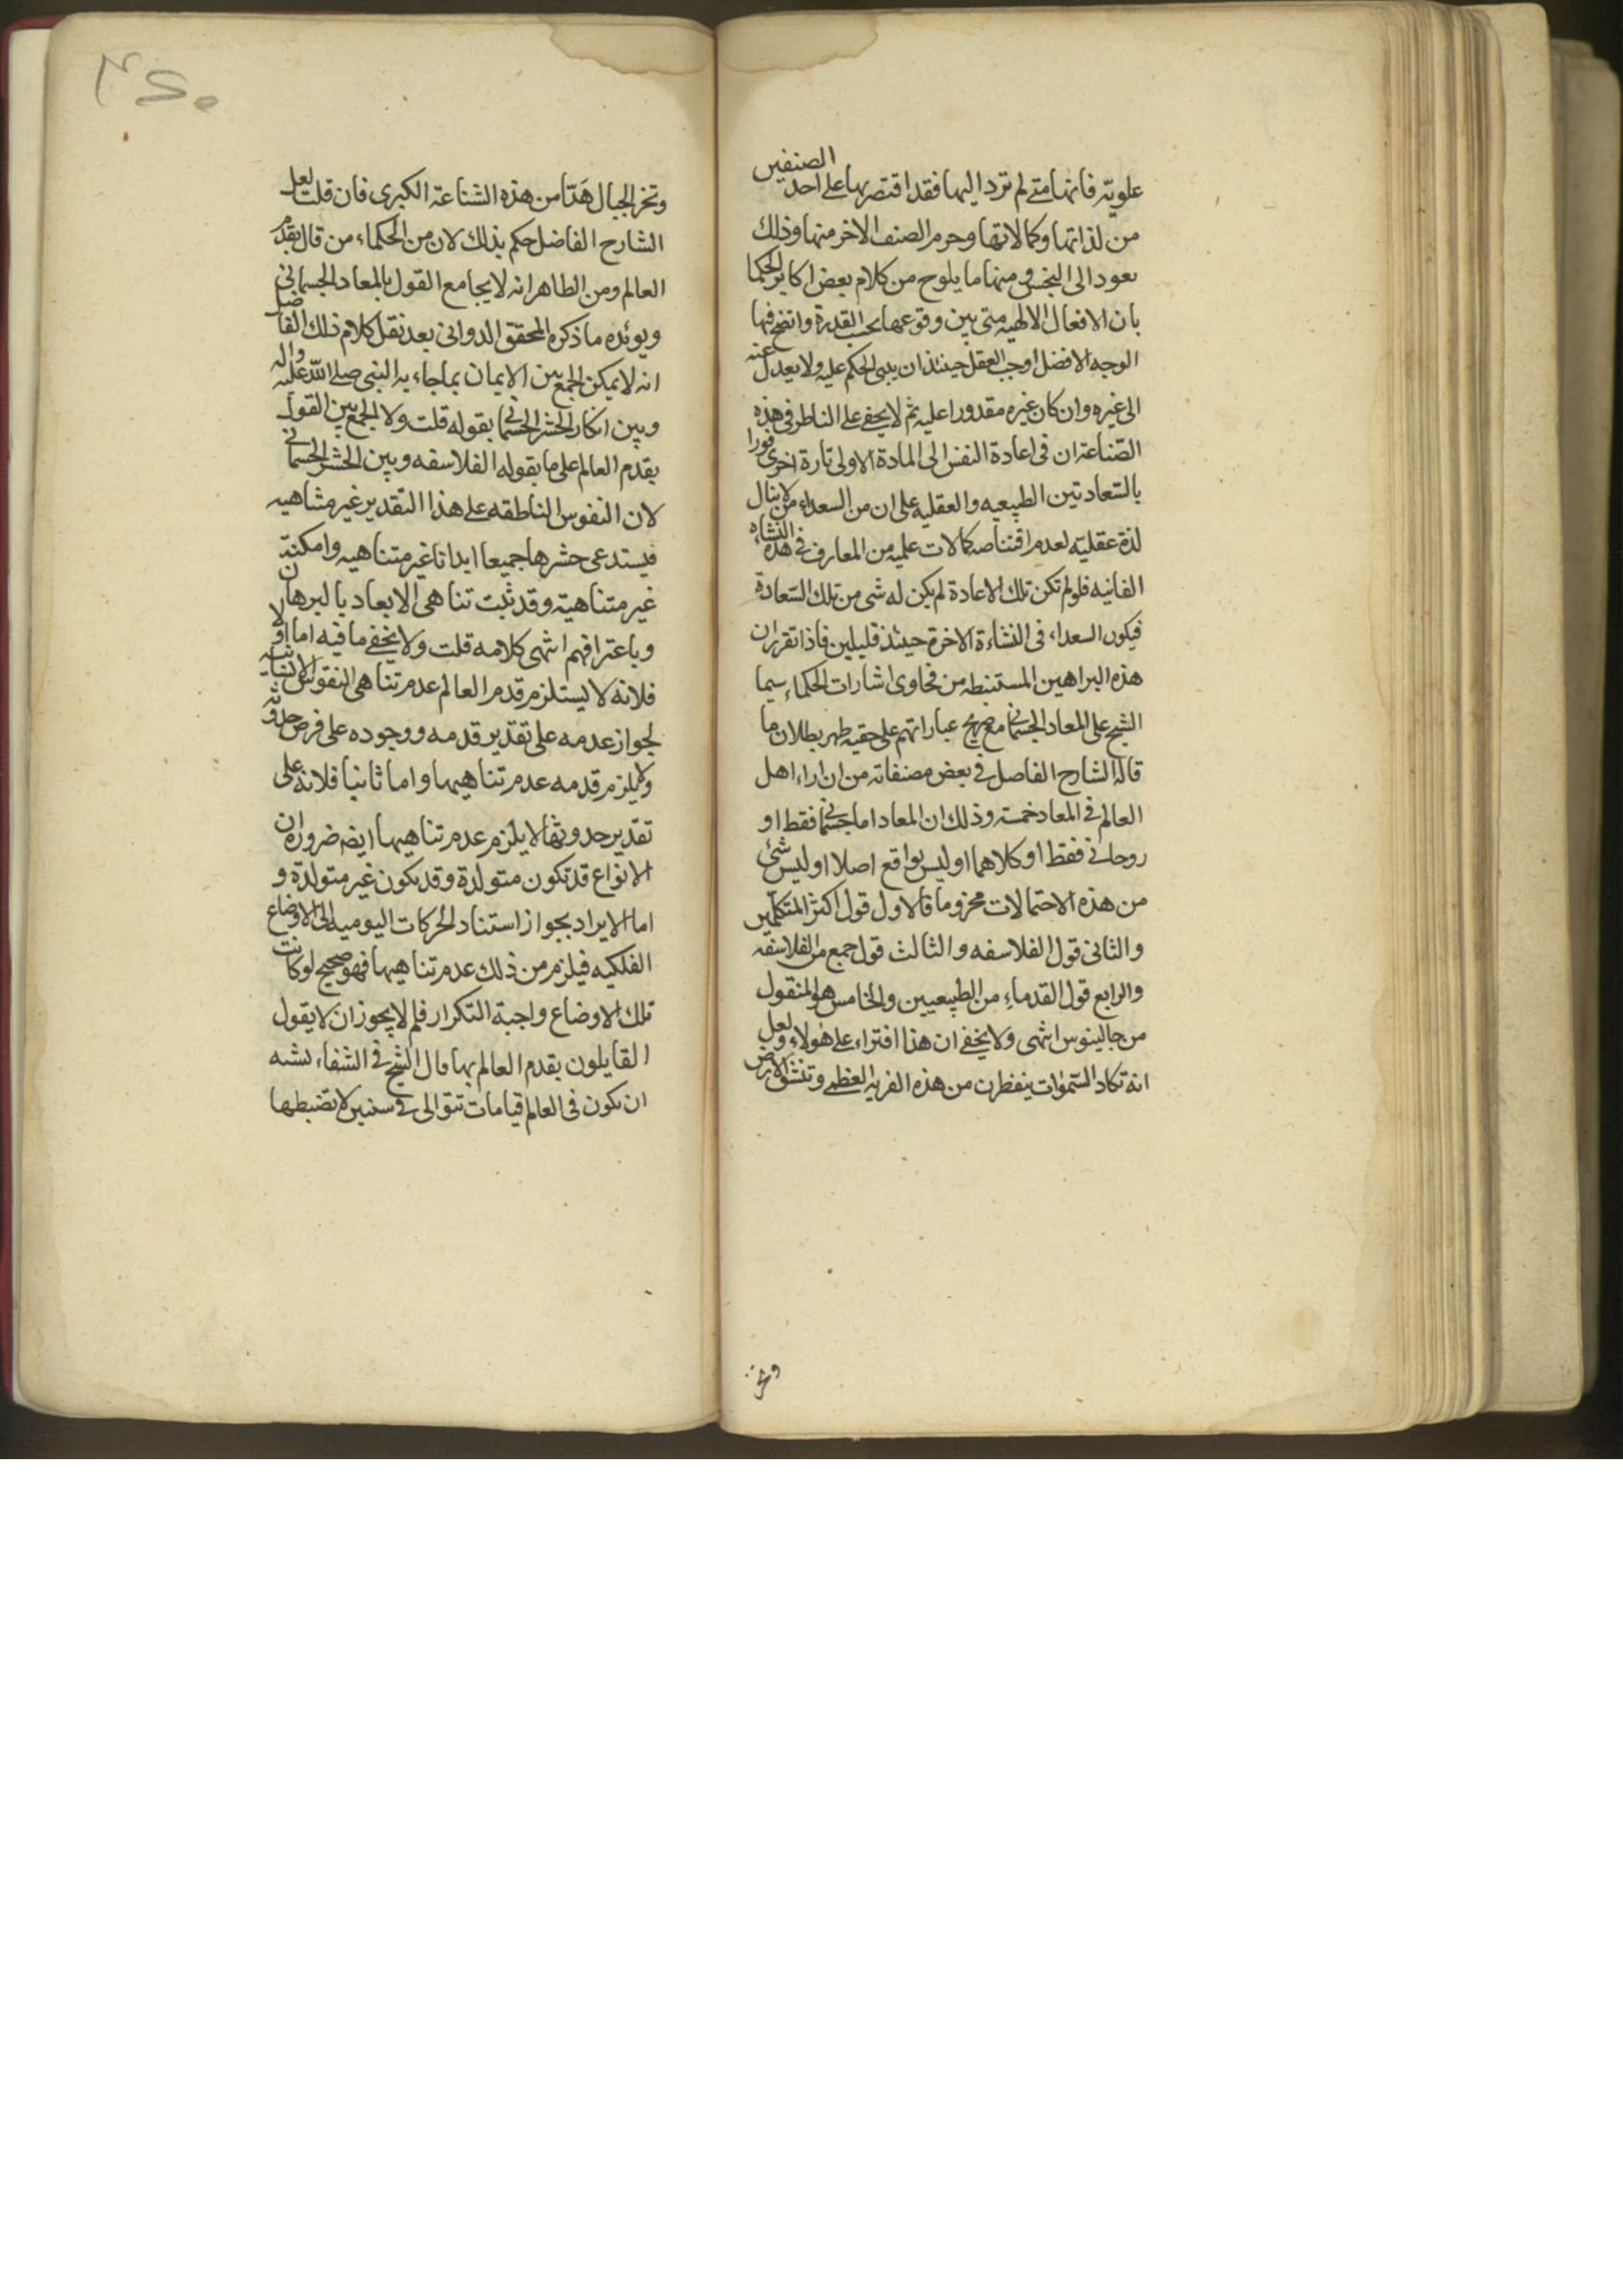 علويته فانها متى لم ترد اليها فقد اقتصر بها على احد الصنفين
من لذاتها وكمالاتها وحرم الصنف الاخر منها وذلك
يعود الى البخس ومنها ما يلوح من كلام بعض اكابر الحكما
بان الافعال الالهيه متى بين وقوعها بحسب القدرة واتضح فيها
الوجه الافضل اوجب العقل حينئذ ان يبنى الحكم عليه ولا يعدل عنه
الى غيره وان كان غيره مقدورا عليه ثم لا يخفى على الناظر فى هذه
الصناعة ان فى اعادة النفس الى المادة الاولى تارة اخرى فورا
بالسعادتين الطبيعيه والعقليه على ان من السعداء من لا ينال
لذة عقلية لعدم اقتناصه كمالات علميه من المعارف فى هذه النشاه
الفانيه فلو لم تكن تلك الاعادة لم يكن له شى من تلك السعادة
فيكون السعداء فى النشاءة الاخرة حينئذ قليلين فاذا تقرر ان
هذه البراهين المستنبطه من فحاوى اشارات الحكماء سيما
الشيخ على المعاد الجسمانى مع صريح عباراتهم على حقيه ظهر بطلان ما
قاله الشارح الفاضل فى بعض مصنفاته من ان اراء اهل
العالم فى المعاد خمسة وذلك ان المعاد اما جسمانى فقط او
روحانى فقط او كلاهما او ليس بواقع اصلا او ليس شئ
من هذه الاحتمالات مجزوما فالاول قول اكثر المتكلمين
والثانى قول الفلاسفه والثالث قول جمع من الفلاسفه
والرابع قول القدماء من الطبيعيين والخامس هو المنقول
من جالينوس انتهى ولا يخفى ان هذا افتراء على هؤلاء ولعل
انه تكاد السموات ينفطرن من هذه الفريه العظمى وتنشق الارض
وتخر
وتخر الجبال هَدّا من هذه الشناعة الكبرى فان قلت لعل
الشارح الفاضل حكم بذلك لان من الحكماء من قال بقدم
العالم ومن الظاهر انه لا يجامع القول بالمعاد الجسمانى
ويؤيده ما ذكره المحقق الدوانى بعد نقل كلام ذلك الفاضل
انه لا يمكن الجمع بين الايمان بما جاء به النبى صلى الله عليه واله
وبين انكار الحشر الجسمانى بقوله قلت ولا الجمع بين القول
بقدم العالم على ما يقوله الفلاسفه وبين الحشر الجسمانى
لان النفوس الناطقه على هذا التقدير غير متناهيه
فيستدعى حشرها جميعا ابدانا غير متناهيه وامكنة
غير متناهية وقد ثبت تناهى الابعاد بالبرهان
وباعترافهم انتهى كلامه قلت ولا يخفى ما فيه اما اولا
فلانه لا يستلزم قدم العالم عدم تناهى النفوس الانسانيه
لجواز عدمه على تقدير قدمه ووجوده على فرض حدوثه
ولا يلزم قدمه عدم تناهيها واما ثانيا فلانه على
تقدير حدوثها لا يلزم عدم تناهيها ايضه ضرورة ان
الانواع قد تكون متولدة وقد تكون غير متولدة و
اما الايراد بجواز استناد الحركات اليوميه الى الاوضاع
الفلكيه فيلزم من ذلك عدم تناهيها فهو صحيح لو كانت
تلك الاوضاع واجبة التكرار فلم لا يجوز ان لا يقول
القايلون بقدم العالم بها قال الشيخ فى الشفاء يشبه
ان يكون فى العالم قيامات تتوالى فى سنين لا تضبطها